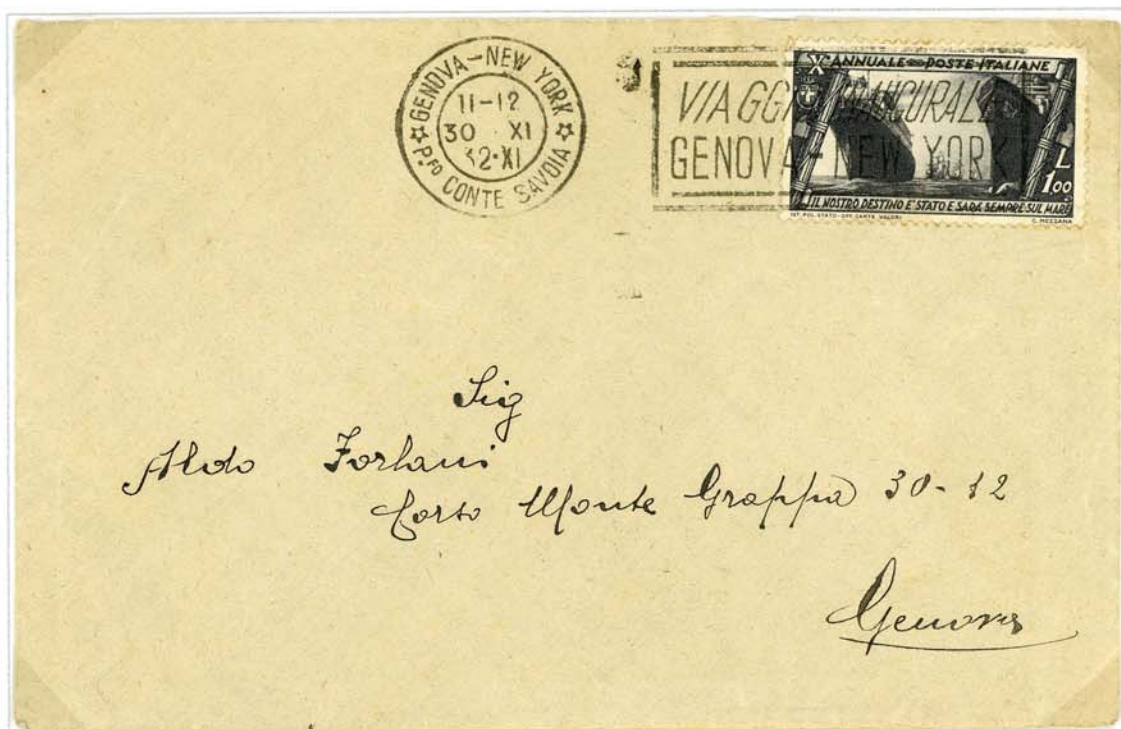 GENOVA-NEW YORK
11-12
30 XI
32·XI
☆ P.fo CONTE SAVOIA ☆
VIAGGIO INAUGURALE
GENOVA-NEW YORK
X ANNUALE POSTE ITALIANE
L
1,00
IL NOSTRO DESTINO E' STATO E SARÀ SEMPRE SUL MARE
IST. POL. STATO-OFF. CARTE VALORI
C. MEZZANA
Sig
Aldo Forlani
Corso Monte Grappa 30-12
Genova